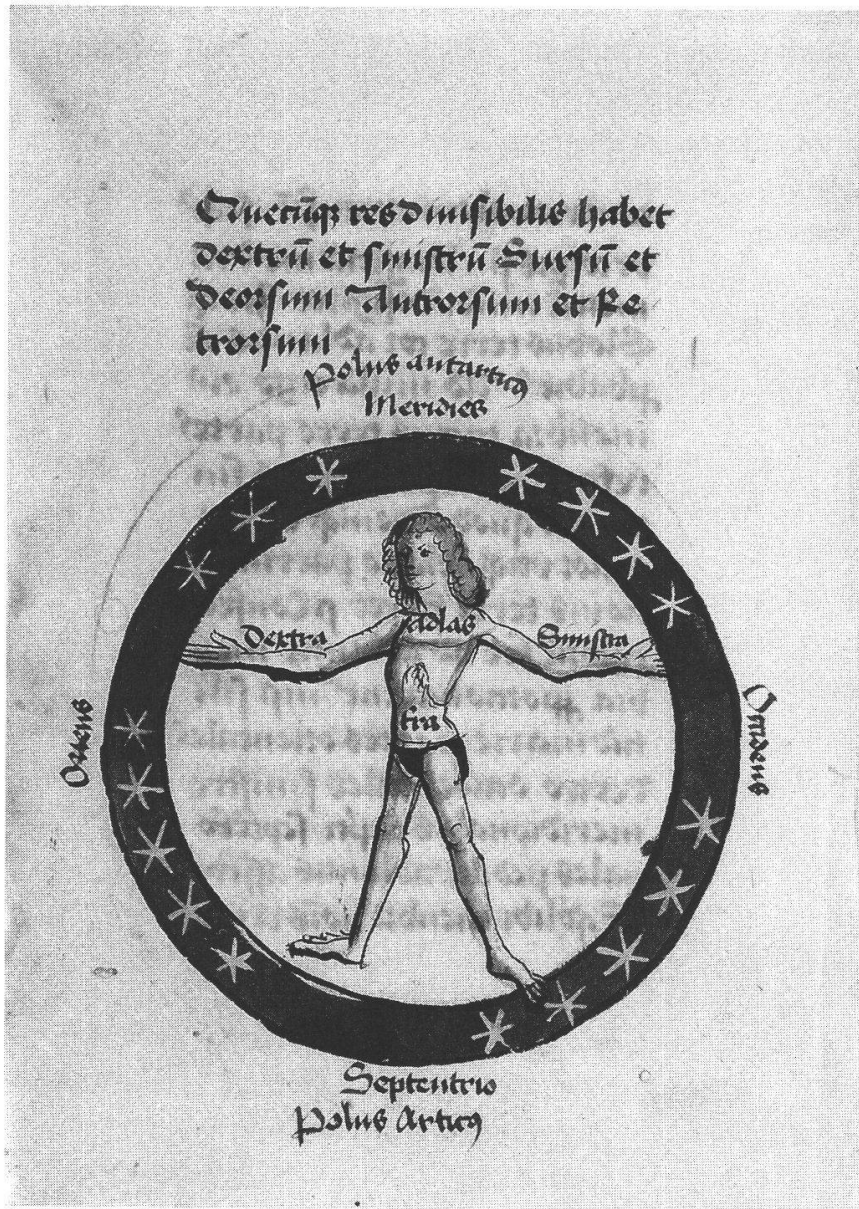 Quecūqȝ res diuisibilis habet
dextrū et sinistrū Sursū et
deorsum Antrorsum et Re
trorsum
Polus antarticꝯ
Meridies
Adlas
Dextra
Sinistra
Oriens
Occidens
Septentrio
Polus Articꝯ